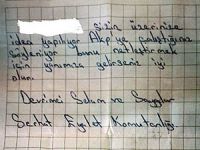 sizin üzerinize
idea yapılıyor Akp ye çalıştığınız
söyleniyor bunu netleştirmek
için yanımıza gelirseniz iyi
olur.
Devrimci Selam ve Saygılar
Serhat Eyalet Komutanlığı